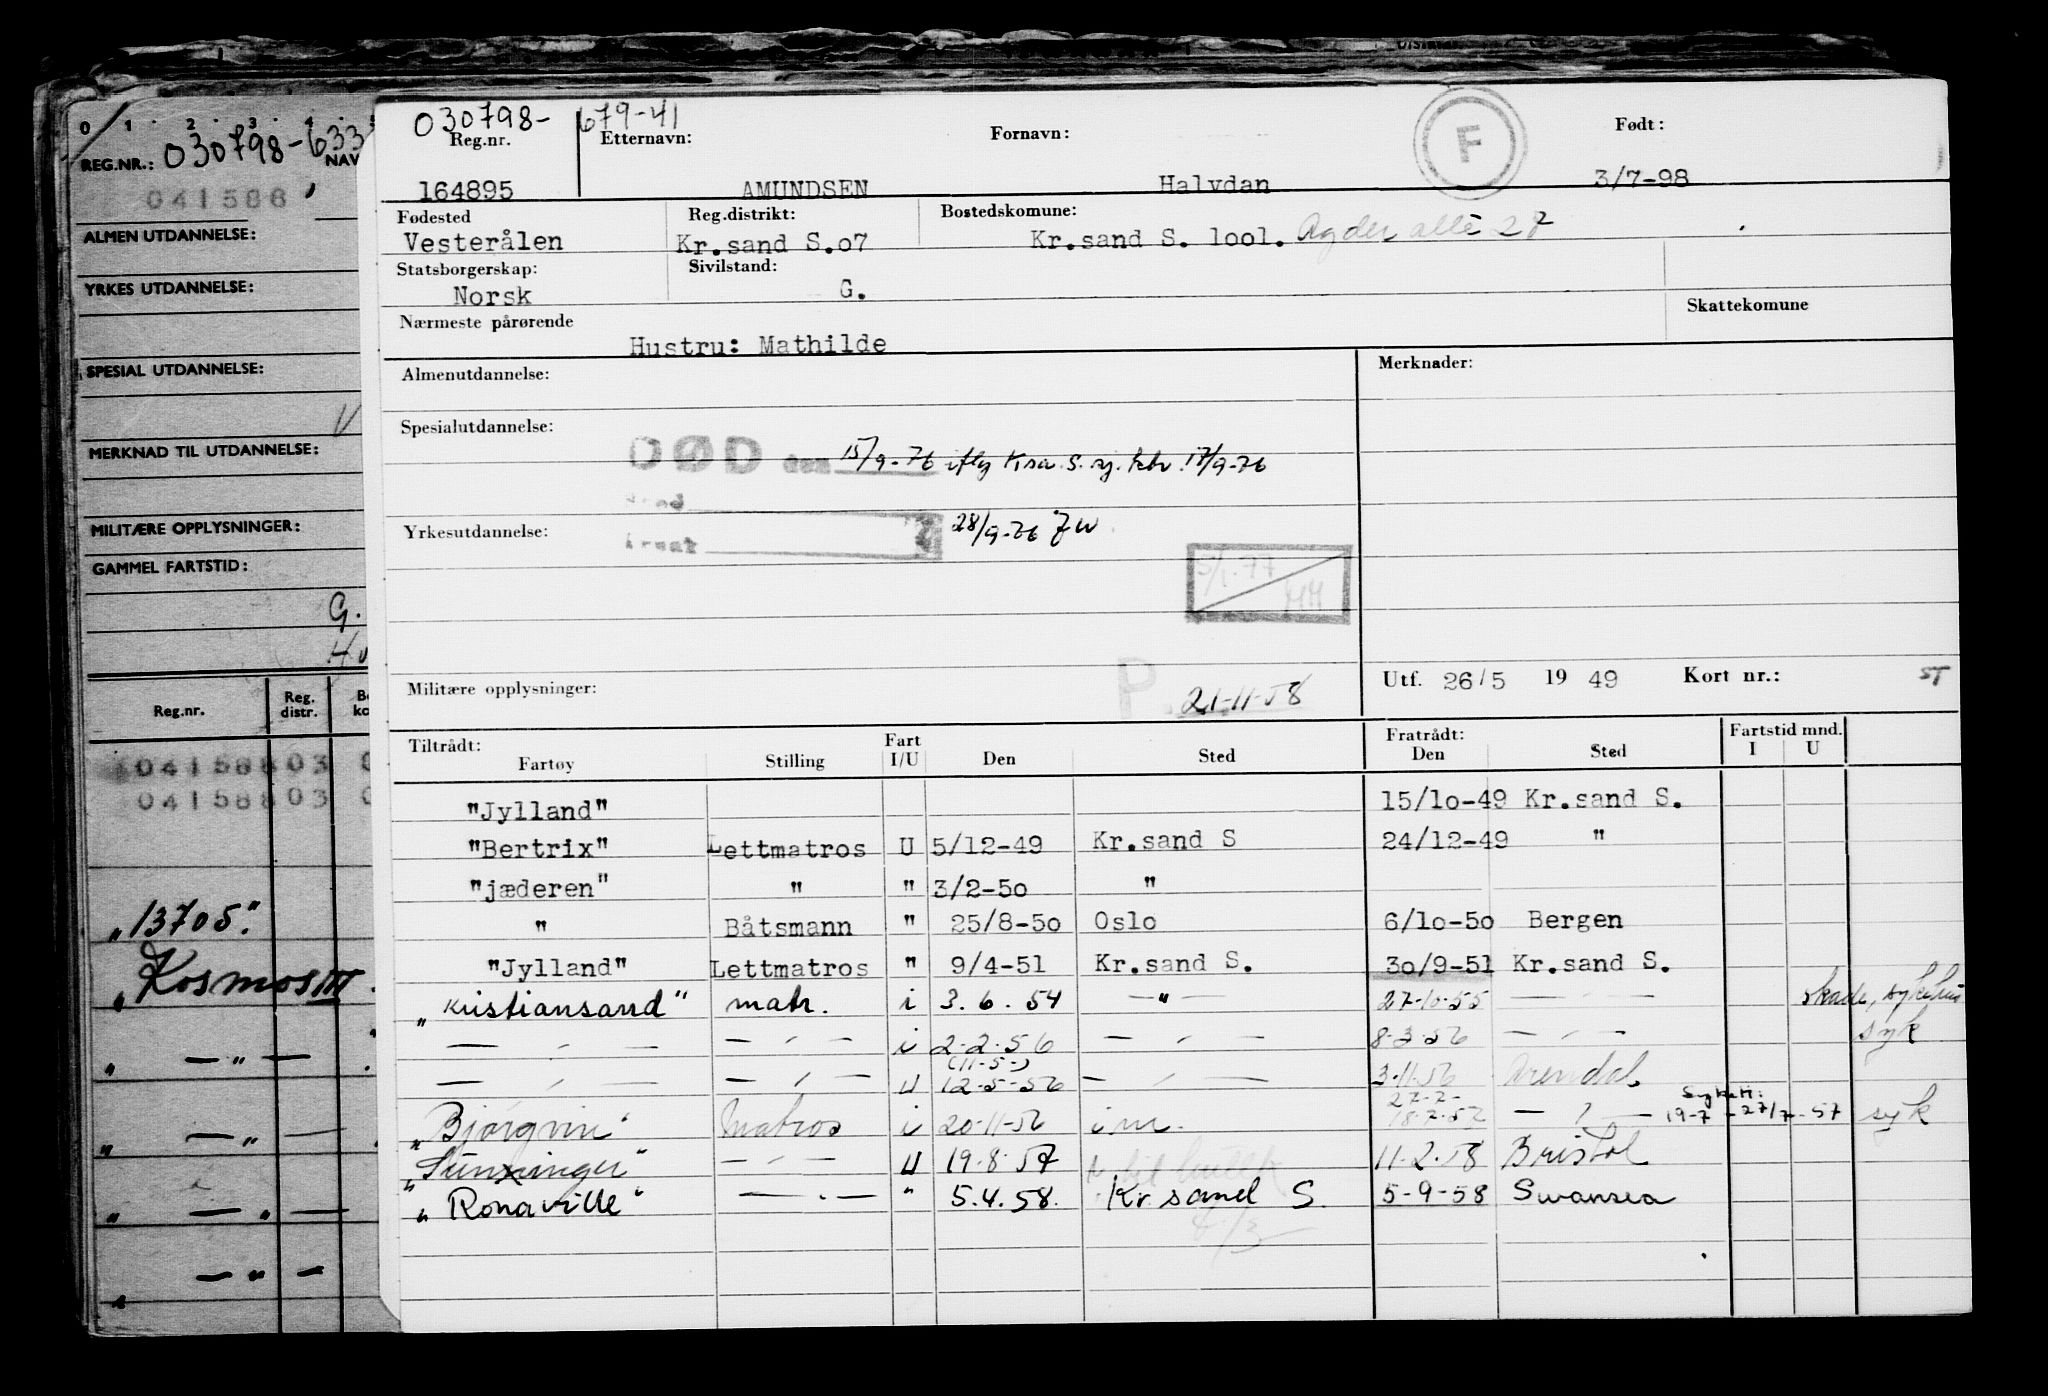 0 1 2 3 4 5
REG.NR.: 030798-633 NAV
041588
ALMEN UTDANNELSE:
YRKES UTDANNELSE:
SPESIAL UTDANNELSE:
MERKNAD TIL UTDANNELSE:
MILITÆRE OPPLYSNINGER:
GAMMEL FARTSTID:
G.
Reg.nr. Reg. distr.
04158803
04158803
"13705"
"Kosmos III
030798-679-41
Reg.nr. Etternavn: Fornavn: F Født:
164895 AMUNDSEN Halvdan 3/7-98
Fødested Reg.distrikt: Bostedskomune:
Vesterålen Kr.sand S.o7 Kr.sand S. lool. Agder allè 27
Statsborgerskap: Sivilstand:
Norsk G.
Nærmeste pårørende Skattekomune
Hustru: Mathilde
Almenutdannelse: Merknader:
Spesialutdannelse:
DØD den 15/9-76 iflg Krsa. S. 17/9-76
Yrkesutdannelse: 28/9-76
5/1-77
Militære opplysninger: P 21-11-58 Utf. 26/5 19 49 Kort nr.: ST
Tiltrådt: Fart Fratrådt: Fartstid mnd.
Fartøy Stilling I/U Den Sted Den Sted I U
"Jylland" 15/lo-49 Kr.sand S.
"Bertrix" Lettmatros U 5/12-49 Kr.sand S 24/12-49 "
"jæderen" " " 3/2-5o "
" Båtsmann " 25/8-5o Oslo 6/lo-5o Bergen
"Jylland" Lettmatros " 9/4-51 Kr.sand S. 3o/9-51 Kr.sand S.
"Kristiansand" matr. i 3.6.54 —"— 27-10-55 — " — skade, sykehus
— " — — " — i 2-2-56 — " — 8-3-56 — " — syk
(11-5-)
— " — — " — U 12-5-56 — " — 3-11-56 Arendal
27-7- Sykeh:
"Bjørgvin" Matros i 20-11-56 im. 18-7-57 — " — 19-7 - 27/7-57 syk
— " — U 19.8.57 11.2.58 Bristol
"Ronaville" — " — " 5.4.58. Kr. sand S. 5-9-58 Swansea